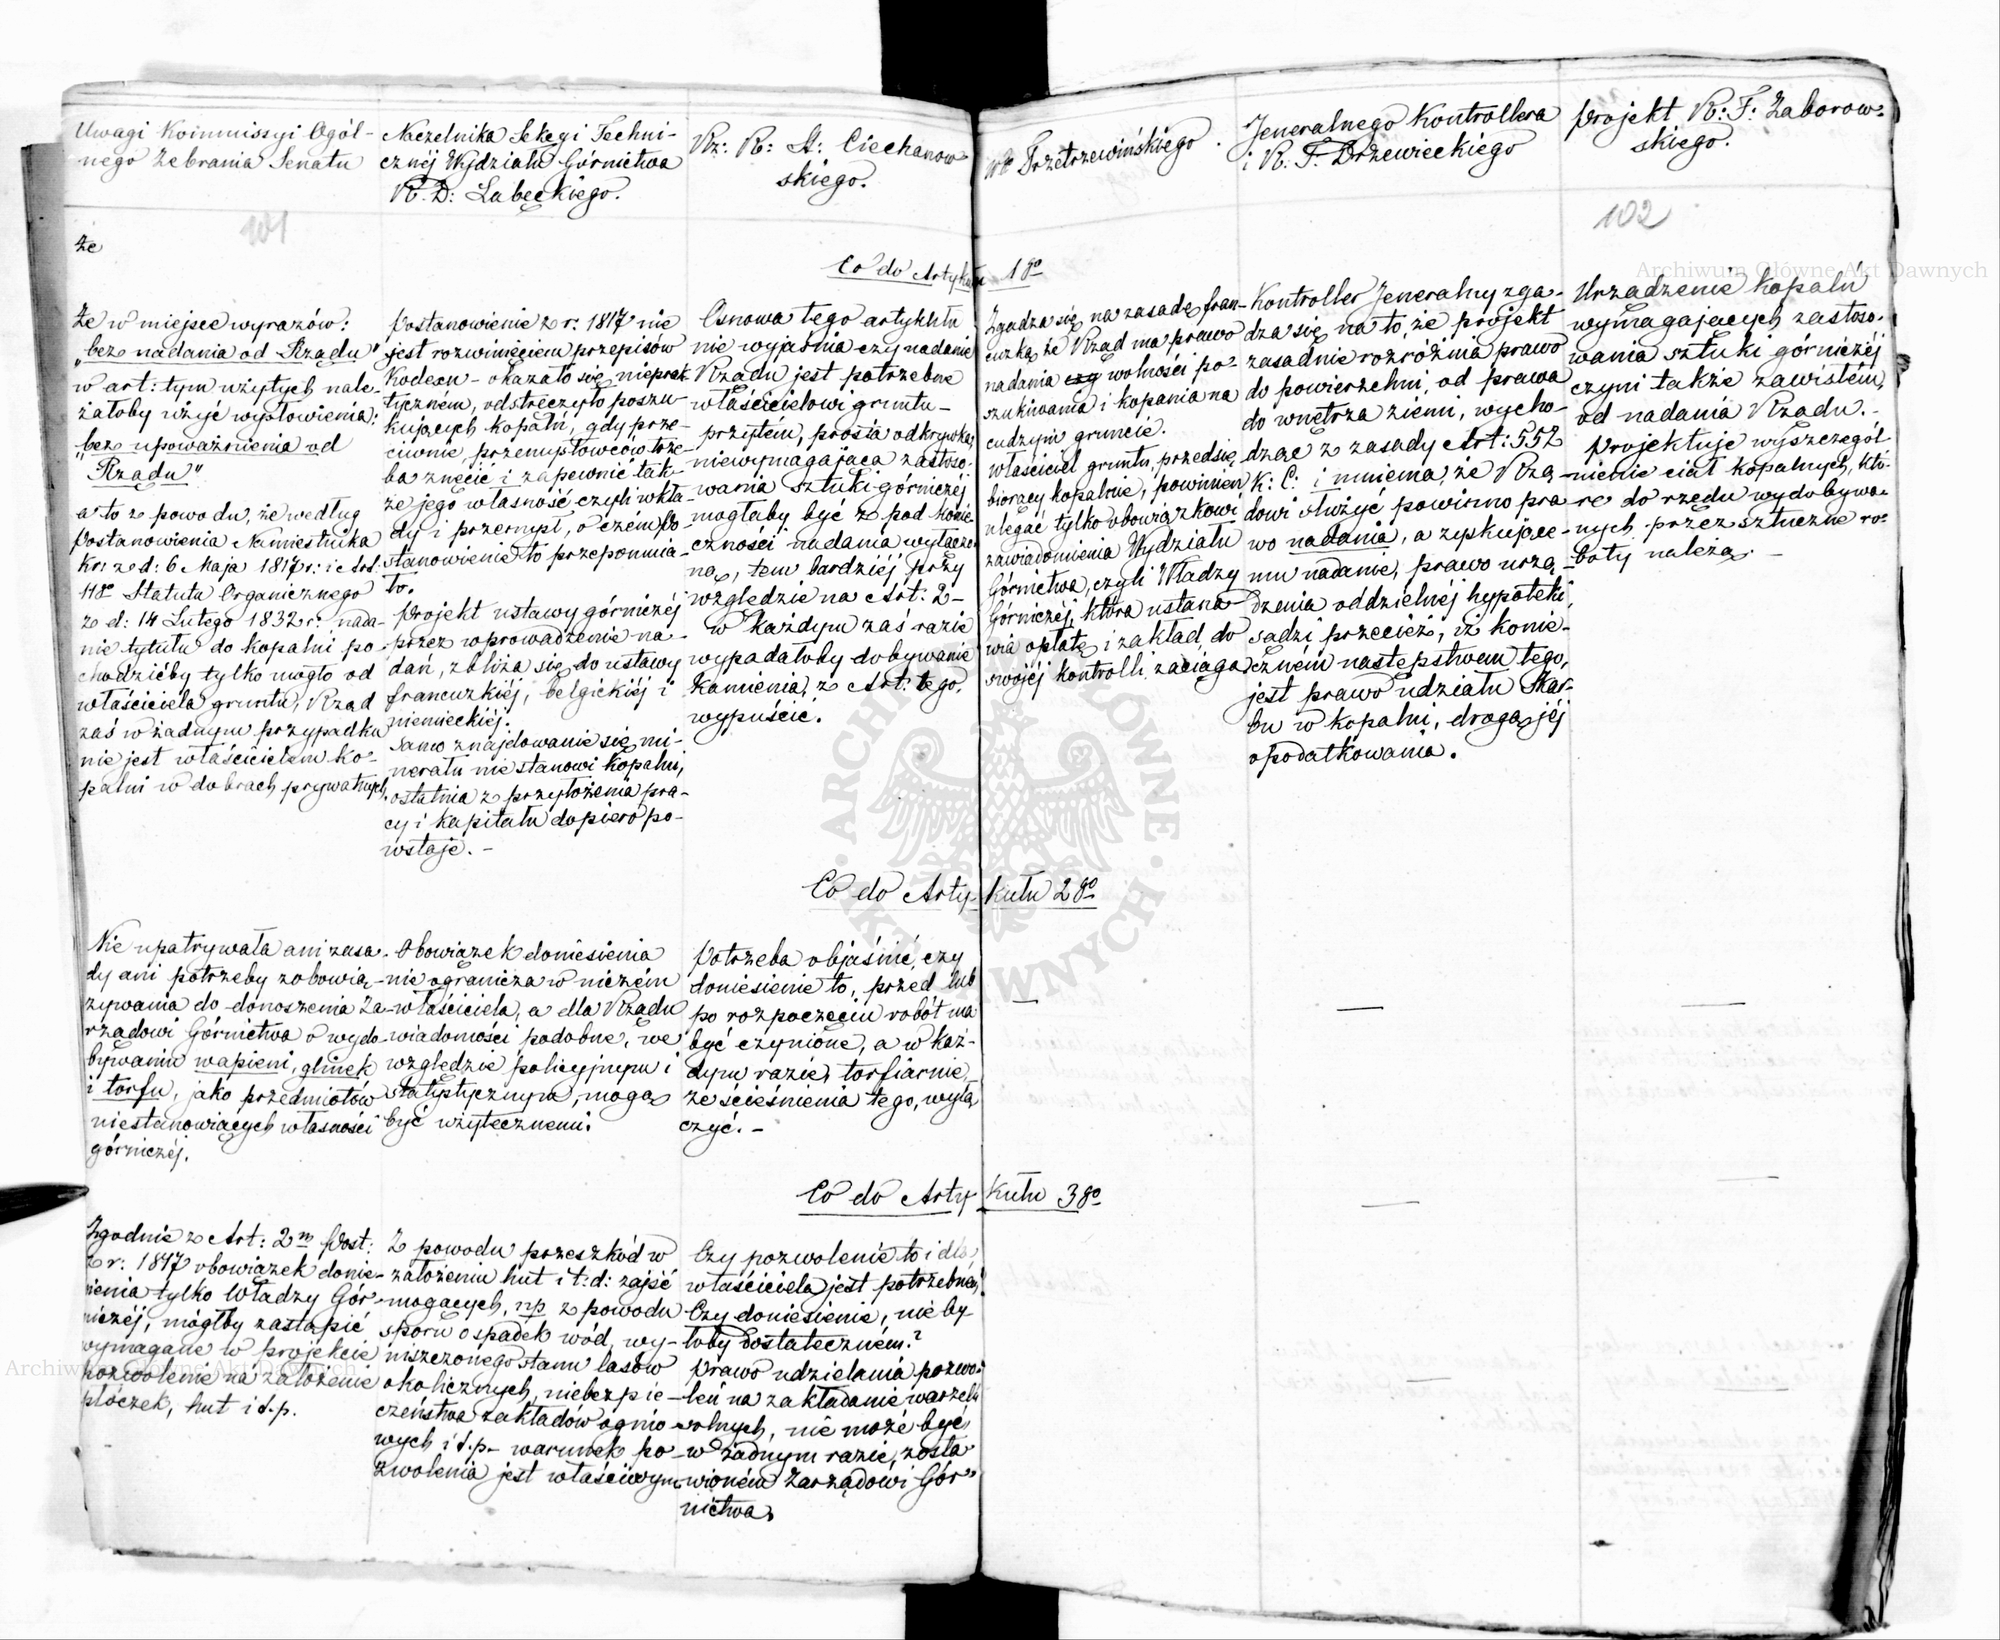 Uwagi Kommissyi Ogól-
nego Zebrania Senatu
Naczelnika Sekcyi Techni-
cznéj Wydziału Górnictwa
R. D: Łabęckiego.
Rz: R: St: Ciechanow
skiego.
Trzetrzewińskiego
Jeneralnego Kontrollera
i R. T. Drzewieckiego
Projekt R: F: Zaborow-
skiego.
101
102
że
Co do Artykułu 1go
Że w miejsce wyrazów:
„bez nadania od Rządu"
w art: tym użytych nale-
żałoby użyć wysłowienia:
„bez upoważnienia od
Rządu"
a to z powodu, że według
Postanowienia Namiestnika
Kr: z d: 6 Maja 1817 r: i Art.
Statutu Organicznego
z d: 14 Lutego 1832 r: nada-
nie tytułu do kopalni po-
chodzićby tylko mogło od
właściciela gruntu, Rząd
zaś w żadnym przypadku
nie jest właścicielem ko-
palni w dobrach prywatnych.
Postanowienie z r: 1817 nie
jest rozwinięciem przepisów
Kodexu – okazało się nieprak-
tyczném, odstręczyło poszu-
kujących kopalń, gdy prze-
ciwnie, przemysłowców trze-
ba znęcić i zapewnić tak-
że jego własność czyli wkła-
dy i przemysł, o czém Po-
stanowienie to przepomnia-
ło.
Projekt ustawy górniczéj
przez wprowadzenie na-
dań, zbliża się do ustawy
francuzkiéj, belgickiéj i
niemieckiéj.
Samo znajdowanie się mi-
nerału nie stanowi kopalni,
ostatnia z przyłożenia pra-
cy i kapitału dopiero po-
wstaje. –
Osnowa tego artykułu
nie wyjaśnia czy nadanie
Rządu jest potrzebne
właścicielowi gruntu –
przytem, prosta odkrywka
niewymagająca zastoso-
wania sztuki górniczéj
mogłaby być z pod konie-
czności nadania wyłączo
ną, tem bardziéj przy
względzie na Art: 2 –
w każdym zaś razie
wypadałoby dobywanie
kamienia, z Art: tego,
wypuścić.
Zgadza się na zasadę fran-
cuzką że Rząd ma prawo
nadania wolności po-
szukiwania i kopania na
cudzym gruncie.
Właściciel gruntu, przedsię
biorący kopalnie, powinien
ulegać tylko obowiązkowi
zawiadomienia Wydziału
Górnictwa, czyli Władzy
Górniczéj, która ustana-
wia opłatę i zakład do
swojéj kontrolli zaciąga
Kontroller Jeneralny zga-
dza się na to że projekt
zasadnie rozróżnia prawo
do powierzchni, od prawa
do wnętrza ziemi, wycho-
dząc z zasady Art: 552
K: C: i mniema, że Rzą-
dowi służyć powinno pra
wo nadania, a zyskujące-
mu nadanie, prawo urzą-
dzenia oddzielnéj hypoteki,
sądzi przecież, iż konie-
czném następstwem tego,
jest prawo udziału Skar-
bu w kopalni, drogą jéj
opodatkowania.
Urządzenie kopalń
wymagających zastoso-
wania sztuki górniczéj
czyni także zawisłém,
od nadania Rządu. –
Projektuje wyszczegól-
nienie ciał kopalnych, któ-
re do rzędu wydobywa-
nych przez sztuczne ro-
boty należą. –
Co do Artykułu 2go
Nie upatrywała ani zasa-
dy ani potrzeby zobowią-
zywania do donoszenia Za-
rządowi Górnictwa o wydo-
bywaniu wapieni, glinek
i torfu, jako przedmiotów
niestanowiących własności
górniczéj.
Obowiązek doniesienia
nie ogranicza w niczém
właściciela, a dla Rządu
wiadomości podobne, we
względzie policyjnym i
statystycznym, mogą
być użytecznemi.
Potrzeba objaśnić, czy
doniesienie to, przed lub
po rozpoczęciu robót ma
być czynione, a w każ-
dym razie, torfiarnie,
ze ścieśnienia tego, wyłą
czyć. –
Co do Artykułu 3go
Zgodnie z Art: 2m Post:
z r: 1817 obowiązek donie-
sienia tylko Władzy Gór-
niczéj, mógłby zastąpić
wymagane w projekcie
pozwolenie na założenie
płóczek, hut i t.p.
Z powodu przeszkód w
założeniu hut i t: d: zajść
mogących, np z powodu
sporu o spadek wód, wy-
niszczonego stanu lasów
okolicznych, niebezpie-
czeństwa zakładów ognio-
wych i t.p – warunek po-
zwolenia jest właściwym
Czy pozwolenie to i dla
właściciela jest potrzebném?
Czy doniesienie, nie by-
łoby dostateczném?
Prawo udzielania pozwo-
leń na zakładanie warzelń
solnych, nie może być
w żadnym razie, zosta-
wioném Zarządowi Gór-
nictwa.
Archiwum Główne Akt Dawnych
Archiwum Główne Akt Dawnych